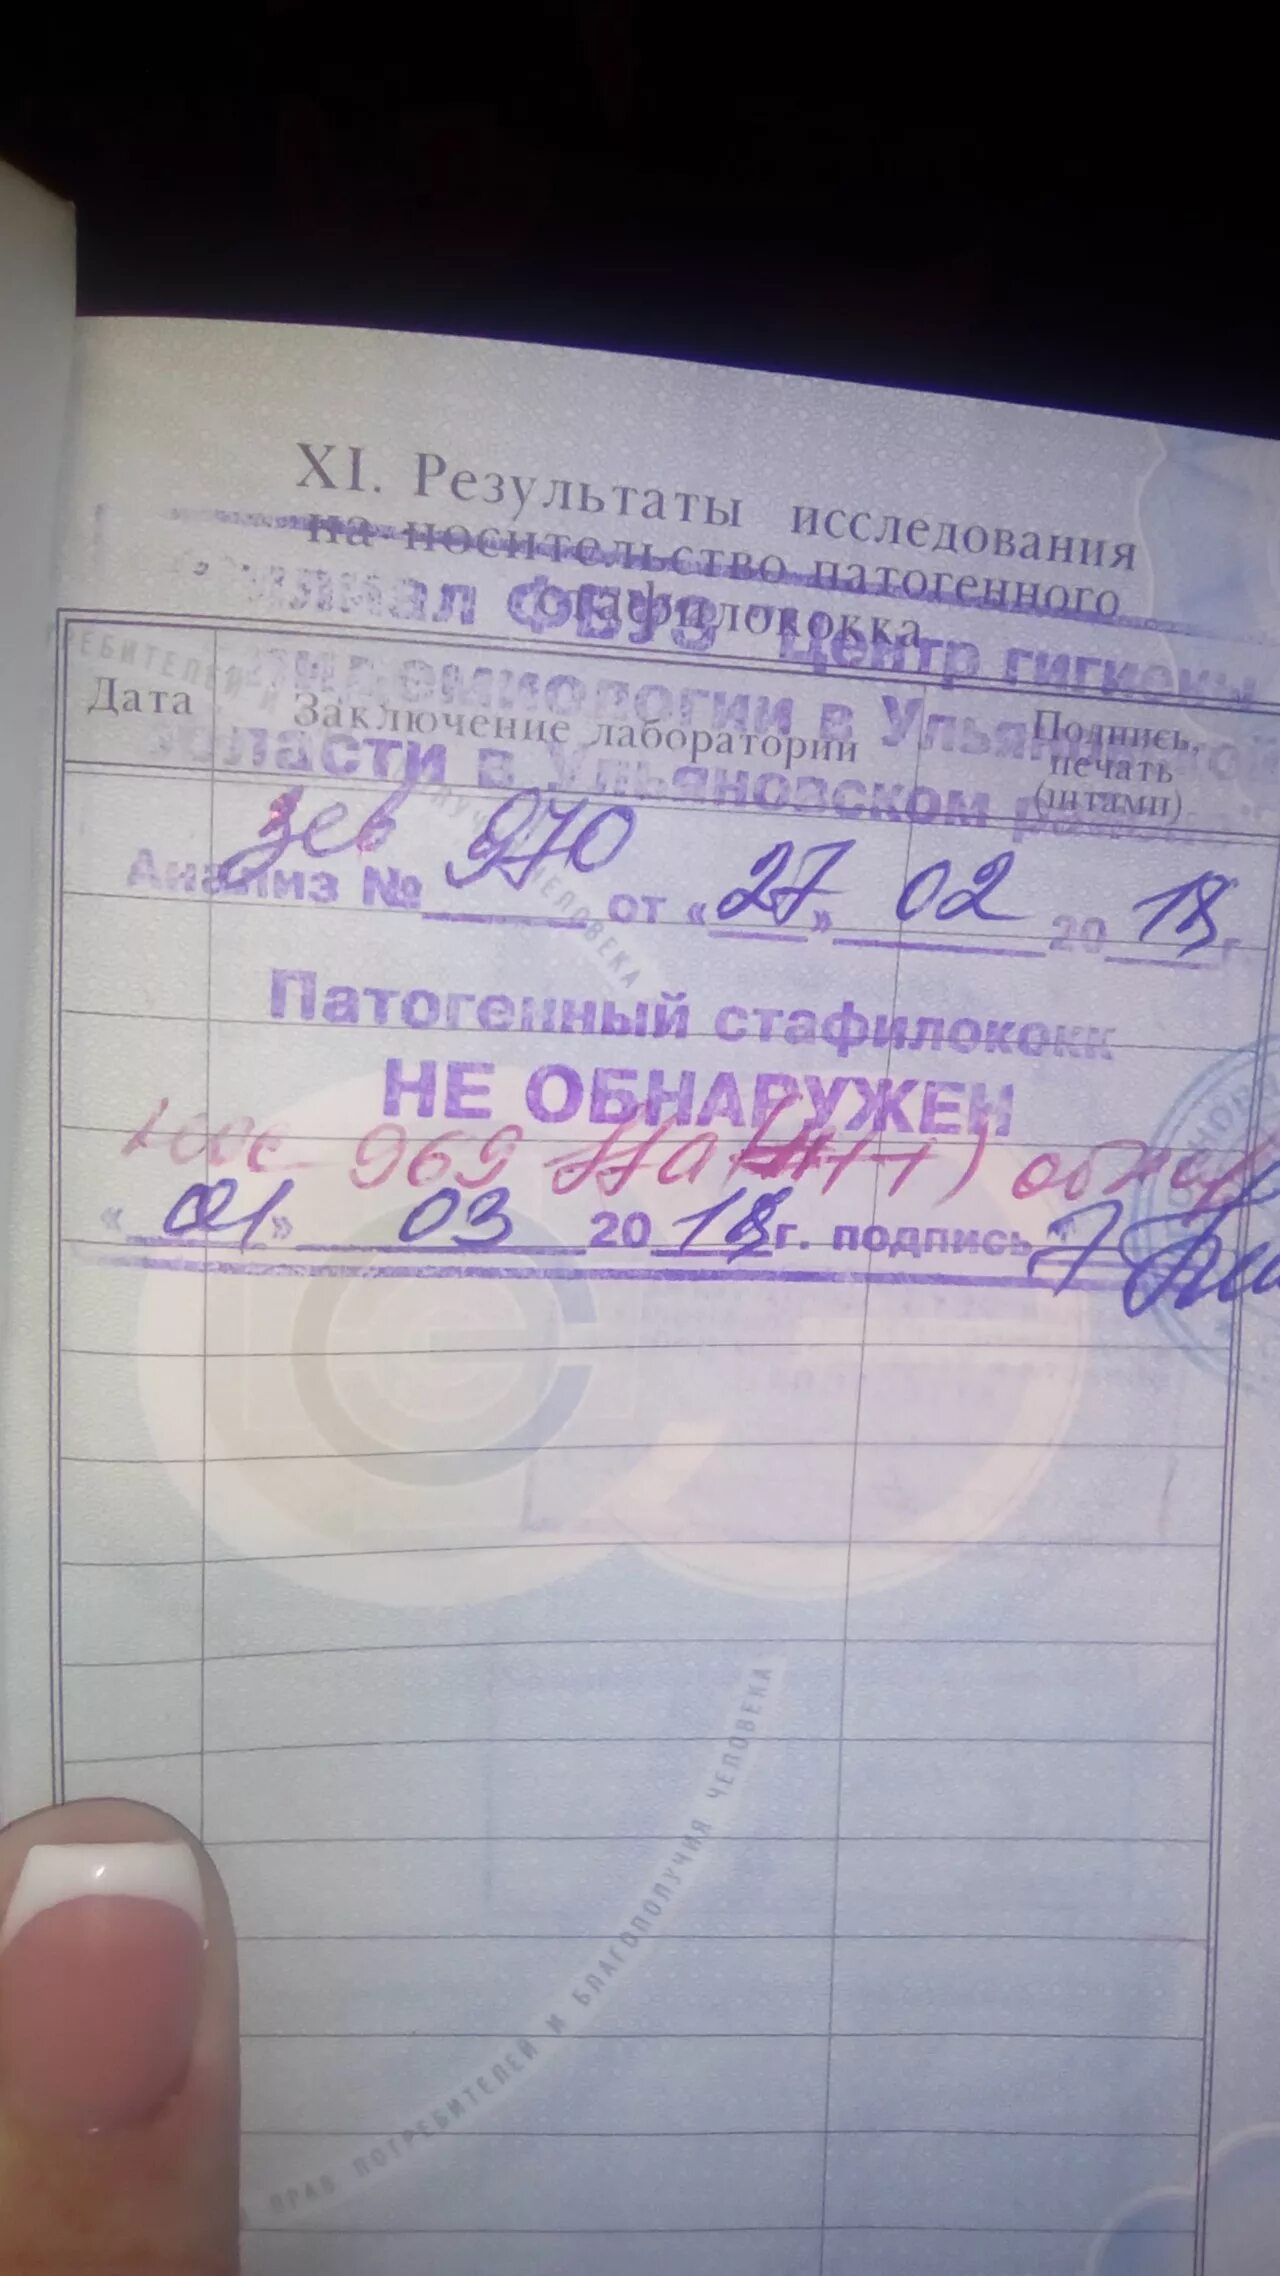 XI. Результаты исследования
на носительство патогенного
стафилококка
филиал ФБУЗ "Центр гигиены
эпидемиологии в Ульяновской
области в Ульяновском
Дата Заключение лаборатории Подпись, печать (штамп)
зев 970
Анализ № от «27» 02 2018г
Патогенный стафилококк
НЕ ОБНАРУЖЕН
969 обнар
«01» 03 2018г. подпись
ПРАВ ПОТРЕБИТЕЛЕЙ И БЛАГОПОЛУЧИЯ ЧЕЛОВЕКА